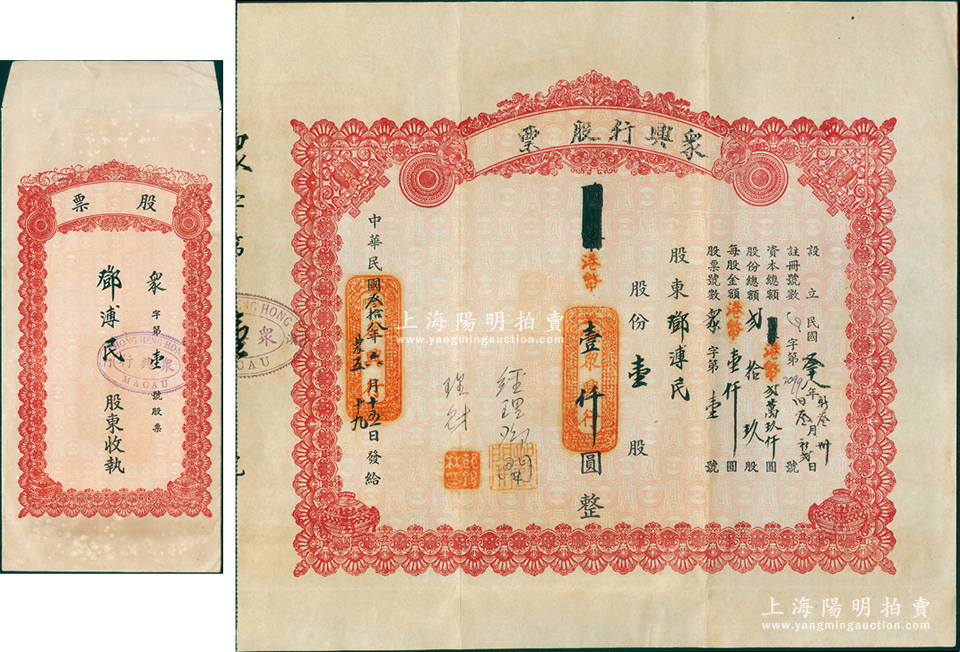 股票
眾字第壹號股票
鄧溥民 股東收執
CHONG HENG HONG
眾興行
MACAU
眾興行股票
設立民國
註冊號數 字第2099號
資本總額港幣貳萬玖仟圓
股份總額貳拾玖股
每股金額港幣壹仟圓
股票號數眾字第壹號
股東鄧溥民
股份壹股
港幣壹仟圓整
眾興行
經理
理財
中華民國叁拾年 月十五日發給
廿五
十九
HENG HONG
眾
上海陽明拍賣
www.yangmingauction.com
上海陽明拍賣
www.yangmingauction.com